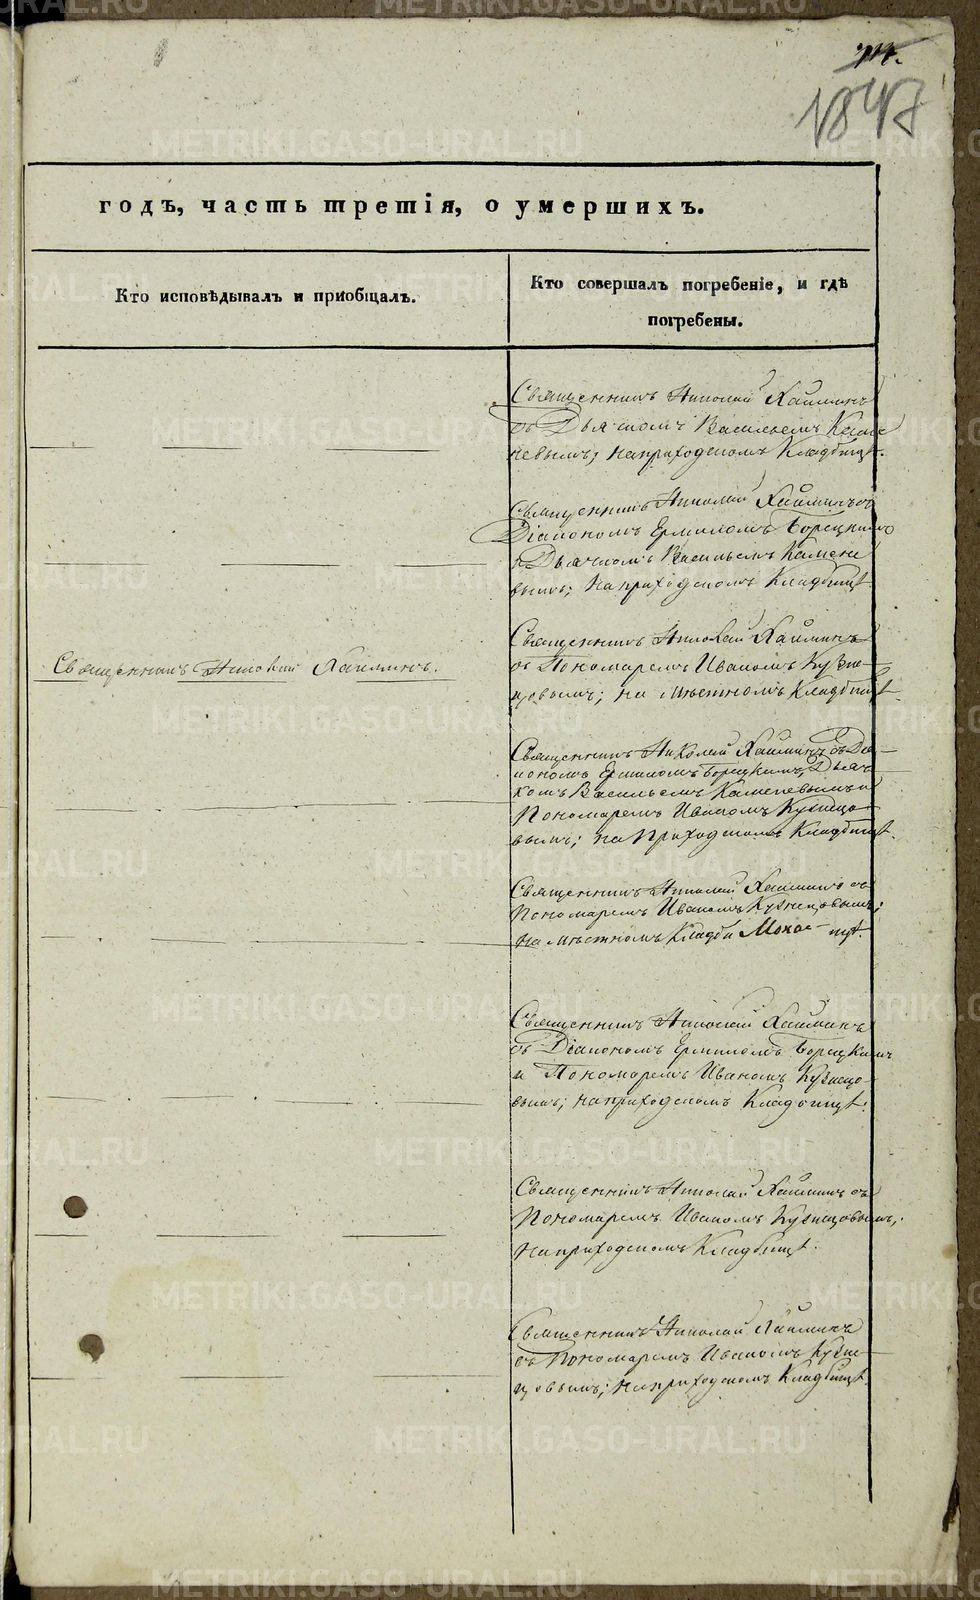 1847
годъ, часть третія, о умершихъ.
Кто исповѣдывалъ и пріобщалъ.
Кто совершалъ погребеніе, и гдѣ
погребены.
Священникъ Николай
съ Дьячкомъ Васильемъ Каме
невымъ; на приходскомъ Кладбищѣ.
Священникъ Николай
Діакономъ Ермиломъ Борецкимъ
и Дьячкомъ Васильемъ Камене
вымъ; на приходскомъ Кладбищѣ
Священникъ Николай
Священникъ Николай
съ Пономаремъ Иваномъ Кузне-
цовымъ; на мѣстномъ Кладбищѣ.
Священникъ Николай съ Діа-
кономъ Ермиломъ Борецкимъ, Дьяч
комъ Васильемъ Каменевымъ и
Пономаремъ Иваномъ Кузнецо-
вымъ; на приходскомъ Кладбищѣ.
Священникъ Николай съ
Пономаремъ Иваномъ Кузнецовымъ;
на мѣстномъ Кладби щѣ.
Священникъ Николай
съ Діакономъ Ермиломъ Борецкимъ
и Пономаремъ Иваномъ Кузнецо-
вымъ; на приходскомъ Кладбищѣ.
Священникъ Николай съ
Пономаремъ Иваномъ Кузнецовымъ,
на приходскомъ Кладбищѣ.
Священникъ Николай
съ Пономаремъ Иваномъ Кузне
цовымъ; на приходскомъ Кладбищѣ.
METRIKI.GASO-URAL.RU